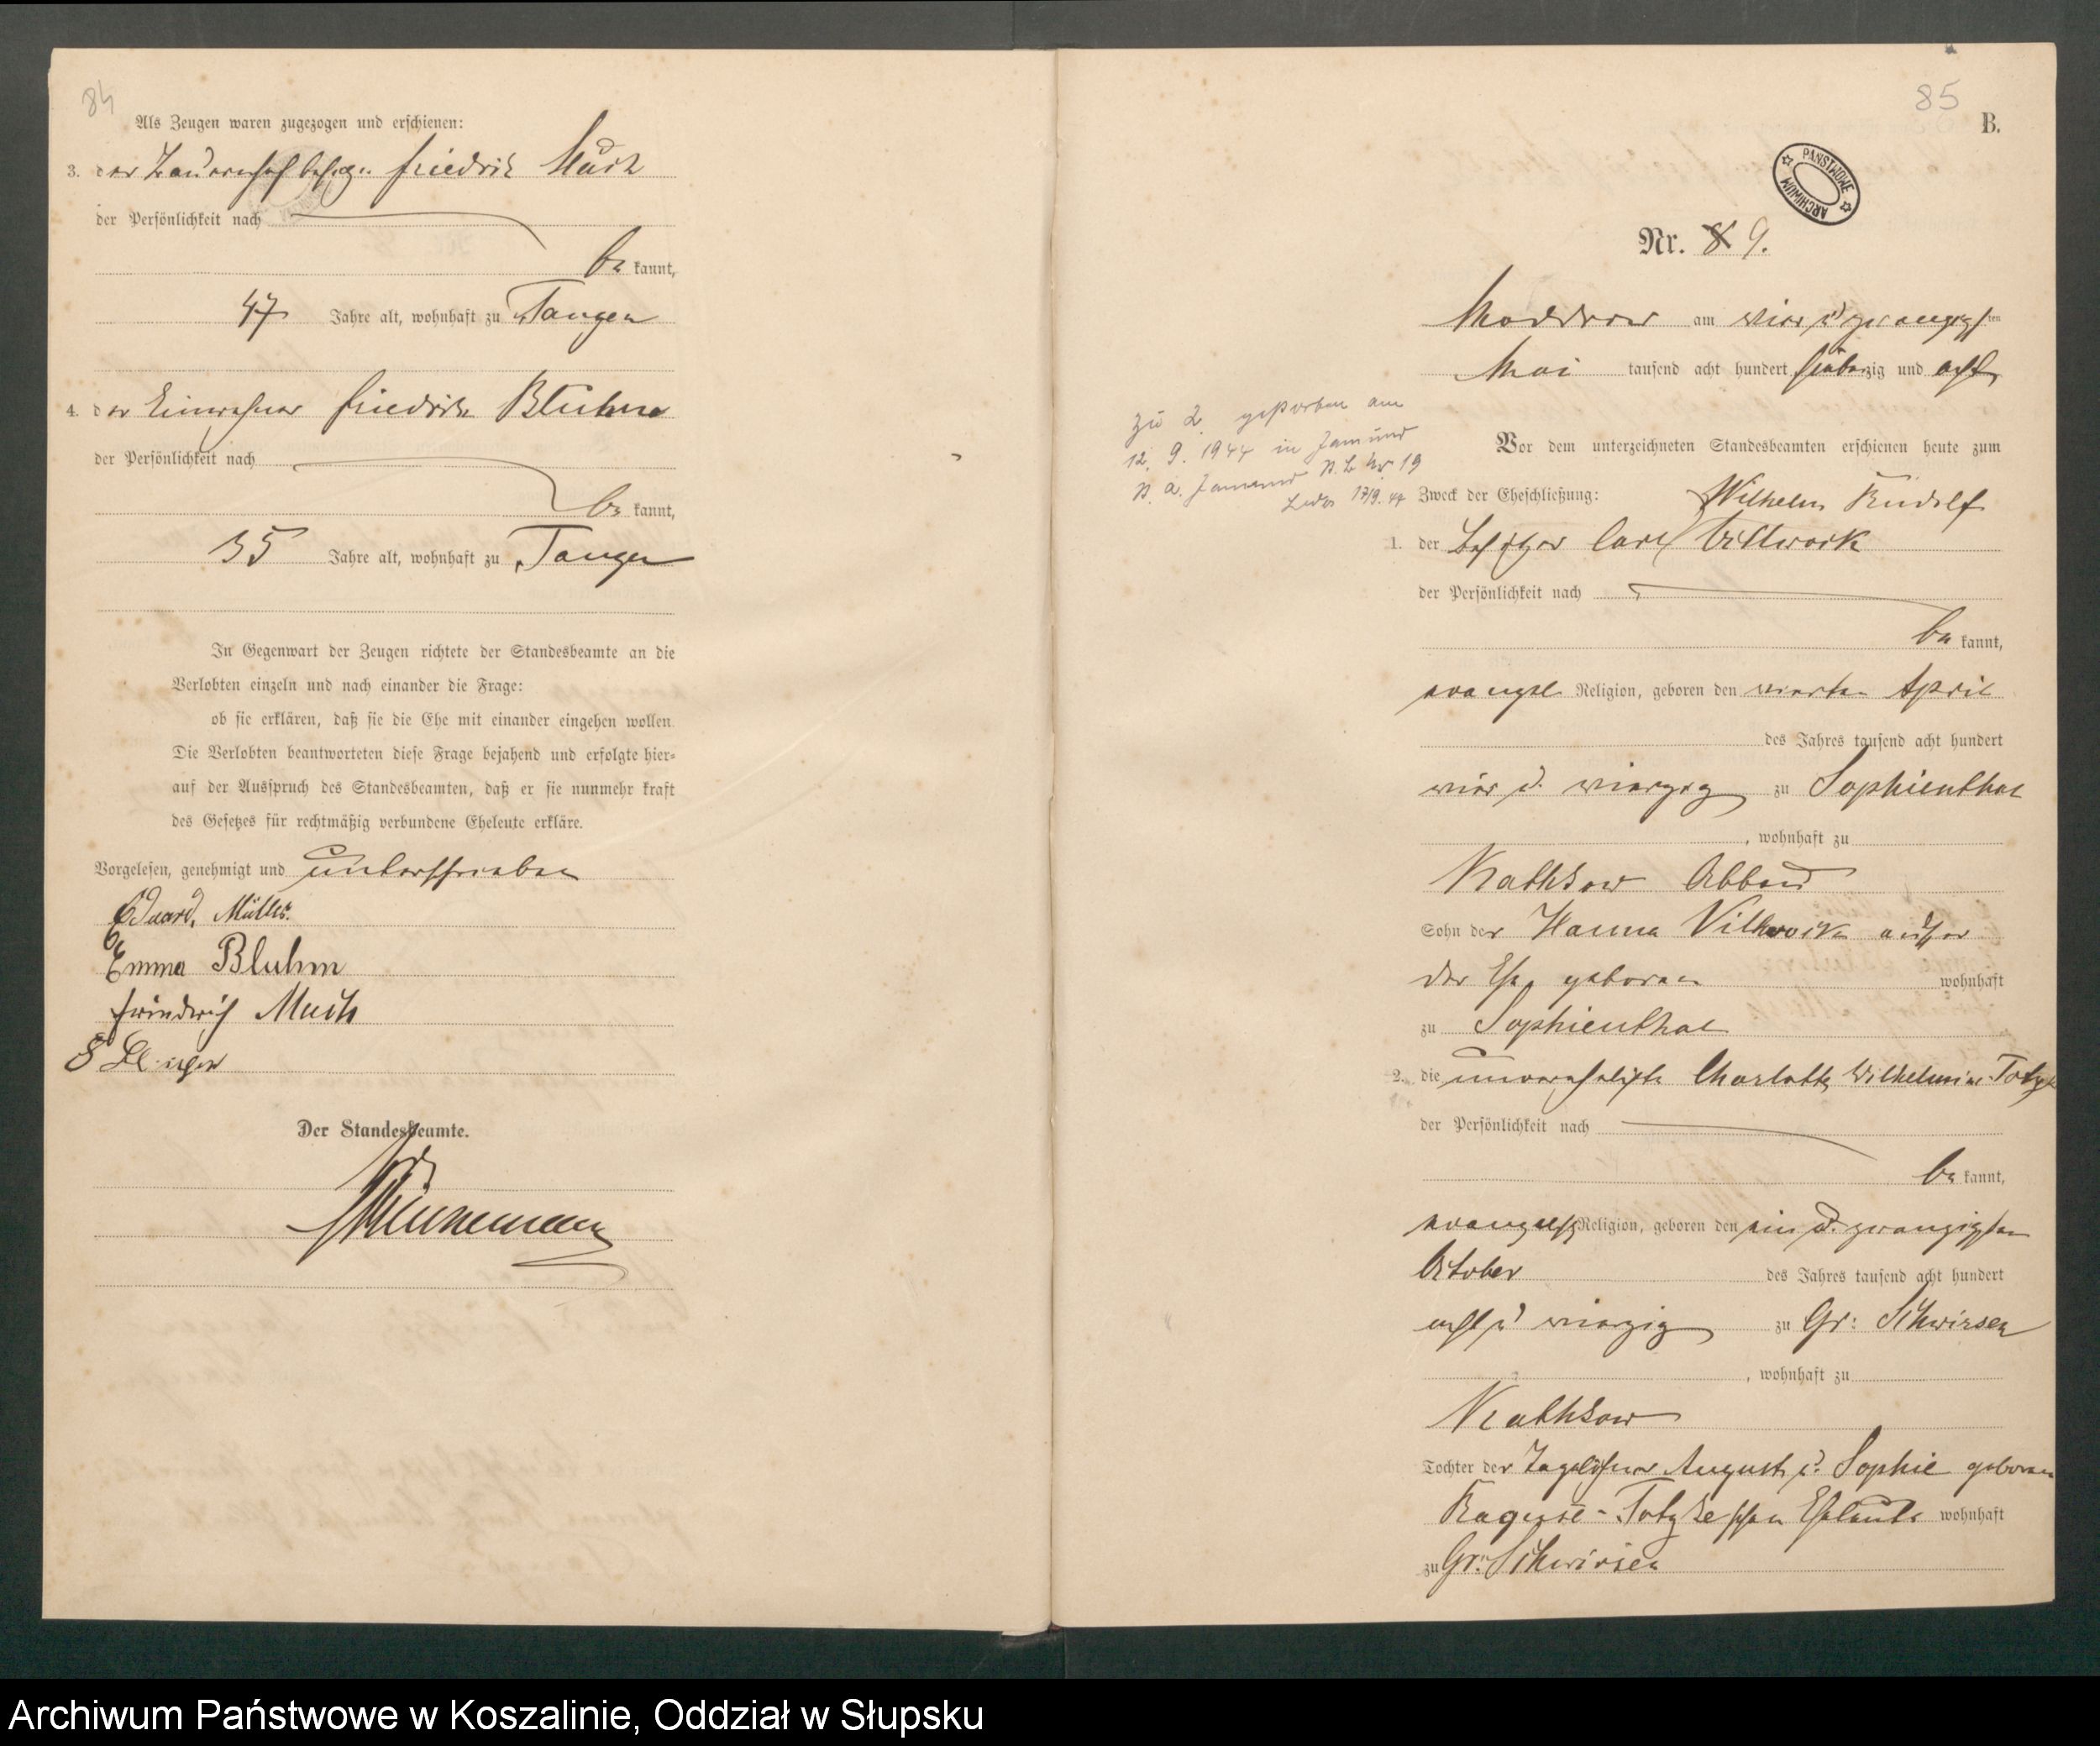 84
Als Zeugen waren zugezogen und erschienen:
3. der Bauernhofbesitzer Friedrich Much
der Persönlichkeit nach
be kannt,
47 Jahre alt, wohnhaft zu Tangen
4. der Einwohner Friedrich Bluhm
der Persönlichkeit nach
be kannt,
35 Jahre alt, wohnhaft zu Tangen
In Gegenwart der Zeugen richtete der Standesbeamte an die
Verlobten einzeln und nach einander die Frage:
ob sie erklären, daß sie die Ehe mit einander eingehen wollen.
Die Verlobten beantworteten diese Frage bejahend und erfolgte hier-
auf der Ausspruch des Standesbeamten, daß er sie nunmehr kraft
des Gesetzes für rechtmäßig verbundene Eheleute erkläre.
Vorgelesen, genehmigt und unterschrieben
Eduard Müller.
Emma Bluhm
Friedrich Much
Der Standesbeamte.
85
B.
PAŃSTWOWE ARCHIWUM
Nr. 8 9.
Moddrow am vier u zwanzigsten
Mai tausend acht hundert siebenzig und acht
zu 2 gestorben am
12. 9. 1944 in Jamund
St. A. Jamund St. B. Nr 19
17/9. 44
Vor dem unterzeichneten Standesbeamten erschienen heute zum
Zweck der Eheschließung: Wilhelm Rudolf
1. der Besitzer Carl Villwock
der Persönlichkeit nach
be kannt,
evangel Religion, geboren den vierten April
des Jahres tausend acht hundert
vier u. vierzig zu Sophienthal
, wohnhaft zu
Kathkow Abbau
Sohn der Hanna Villwock außer
der Ehe geboren wohnhaft
zu Sophienthal
2. die unverehelichte Charlotte Wilhelmine Totzke
der Persönlichkeit nach
be kannt,
evangelisch Religion, geboren den ein u. zwanzigsten
October des Jahres tausend acht hundert
acht u vierzig zu Gr: Schwirsen
, wohnhaft zu
Kathkow
Tochter der Tagelöhner August u. Sophie geborene
Raguse-Totzke schen Eheleute wohnhaft
zu Gr: Schwirsen
Archiwum Państwowe w Koszalinie, Oddział w Słupsku